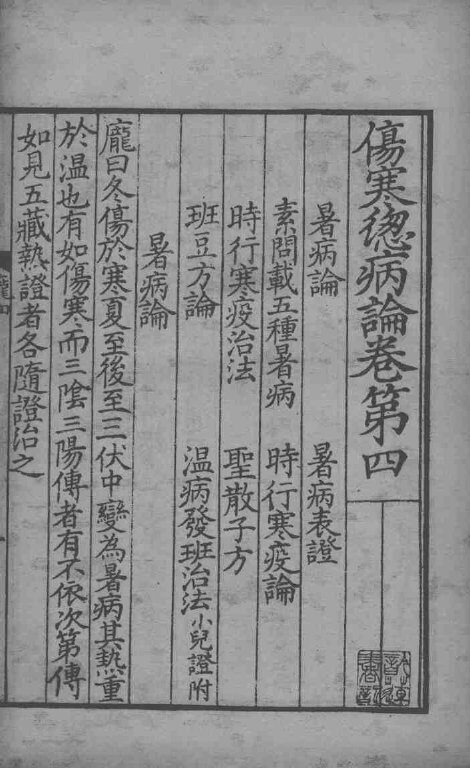 傷寒緫病論卷第四
暑病論　暑病表證
素問載五種暑病　時行寒疫論
時行寒疫治法　聖散子方
班豆方論　温病發班治法小兒證附
暑病論
龐曰冬傷於寒夏至後至三伏中變為暑病其熱重
於温也有如傷寒而三陰三陽傳者有不依次第傳
如見五藏熱證者各隨證治之